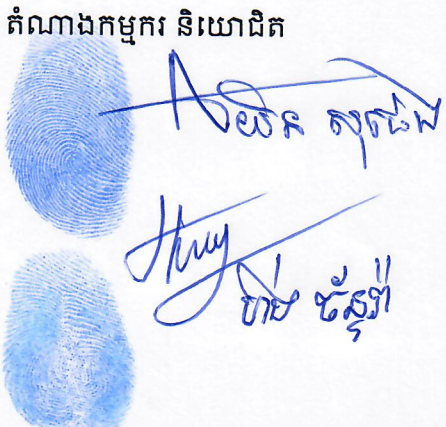 តំណាងកម្មករ និយោជិត
យិន សុផេង
Huy
ហ៊ឹម ច័ន្ទរ៉ា